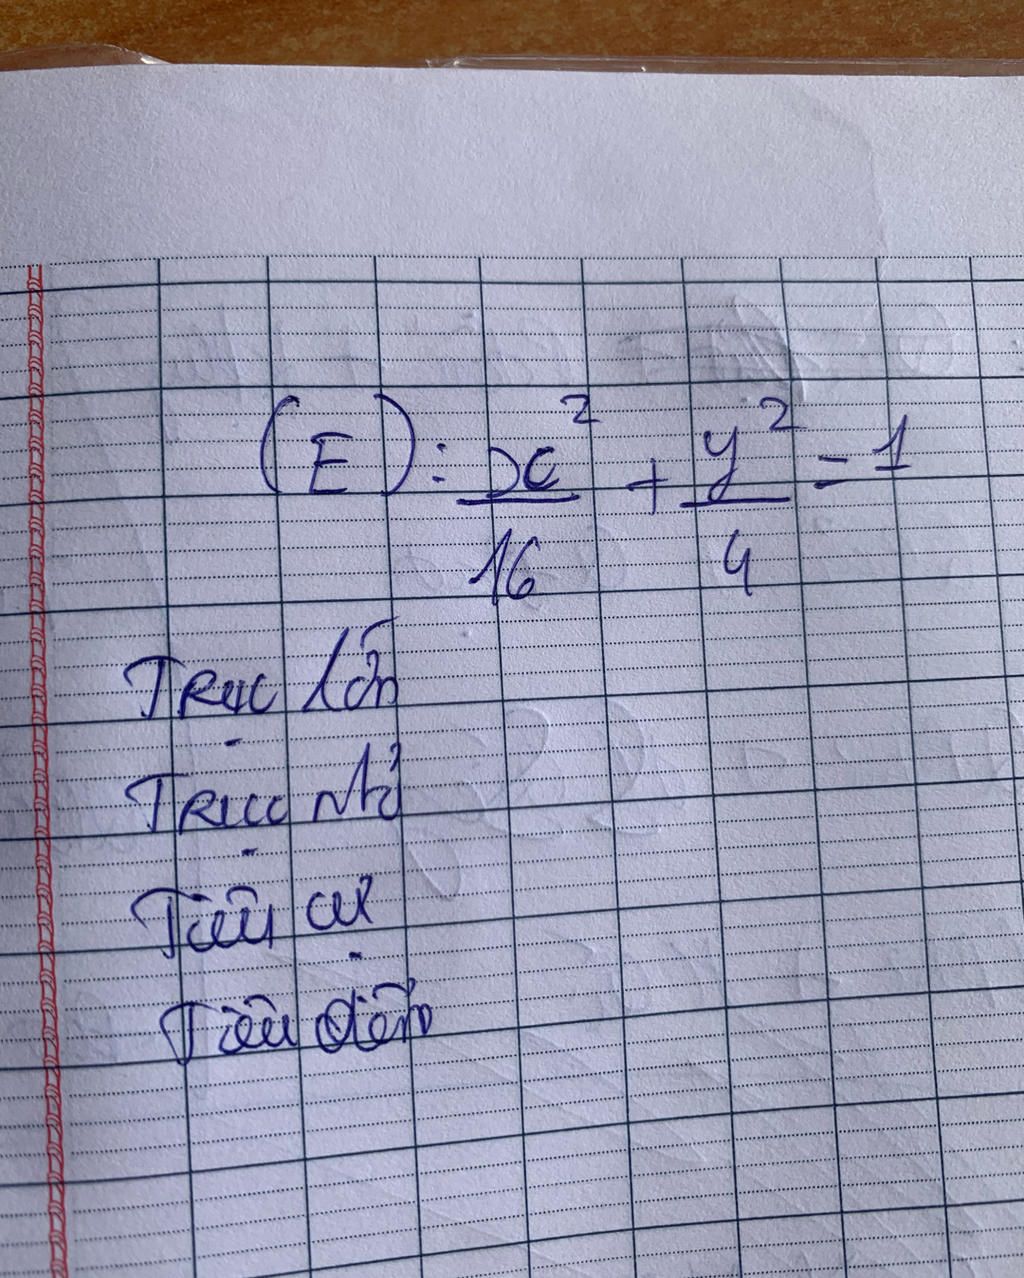 (E): x²/16 + y²/4 = 1
Trục lớn
Trục nhỏ
Tiêu cự
Tiêu điểm